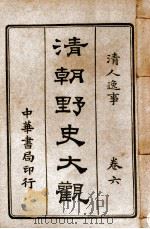 清人逸事
卷六
清朝野史大觀
中華書局印行